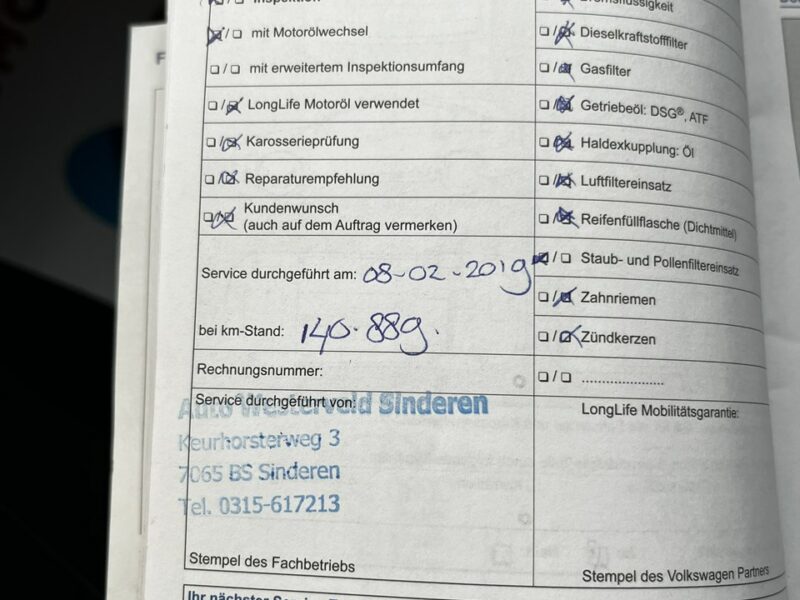 Inspektion
❏/❏ mit Motorölwechsel
❏/❏ mit erweitertem Inspektionsumfang
❏/❏ LongLife Motoröl verwendet
❏/❏ Karosserieprüfung
❏/❏ Reparaturempfehlung
❏/❏ Kundenwunsch
(auch auf dem Auftrag vermerken)
Service durchgeführt am: 08-02-2019
bei km-Stand: 140.889.
Rechnungsnummer:
Service durchgeführt von:
Auto Westerveld Sinderen
Keurhorsterweg 3
7065 BS Sinderen
Tel. 0315-617213
Stempel des Fachbetriebs
Bremsflüssigkeit
❏/❏ Dieselkraftstofffilter
❏/❏ Gasfilter
❏/❏ Getriebeöl: DSG®, ATF
❏/❏ Haldexkupplung: Öl
❏/❏ Luftfiltereinsatz
❏/❏ Reifenfüllflasche (Dichtmittel)
❏/❏ Staub- und Pollenfiltereinsatz
❏/❏ Zahnriemen
❏/❏ Zündkerzen
❏/❏ ......................
LongLife Mobilitätsgarantie:
Stempel des Volkswagen Partners
Ihr nächster Service